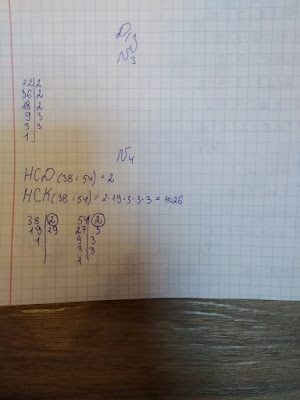 Д/з
№3
72|2
36|2
18|2
9|3
3|3
1|
№4
НСД (38; 54) = 2
НСК (38; 54) = 2·19·3·3·3 = 1026
38|2 54|2
19|19 27|3
1| 9|3
3|3
1